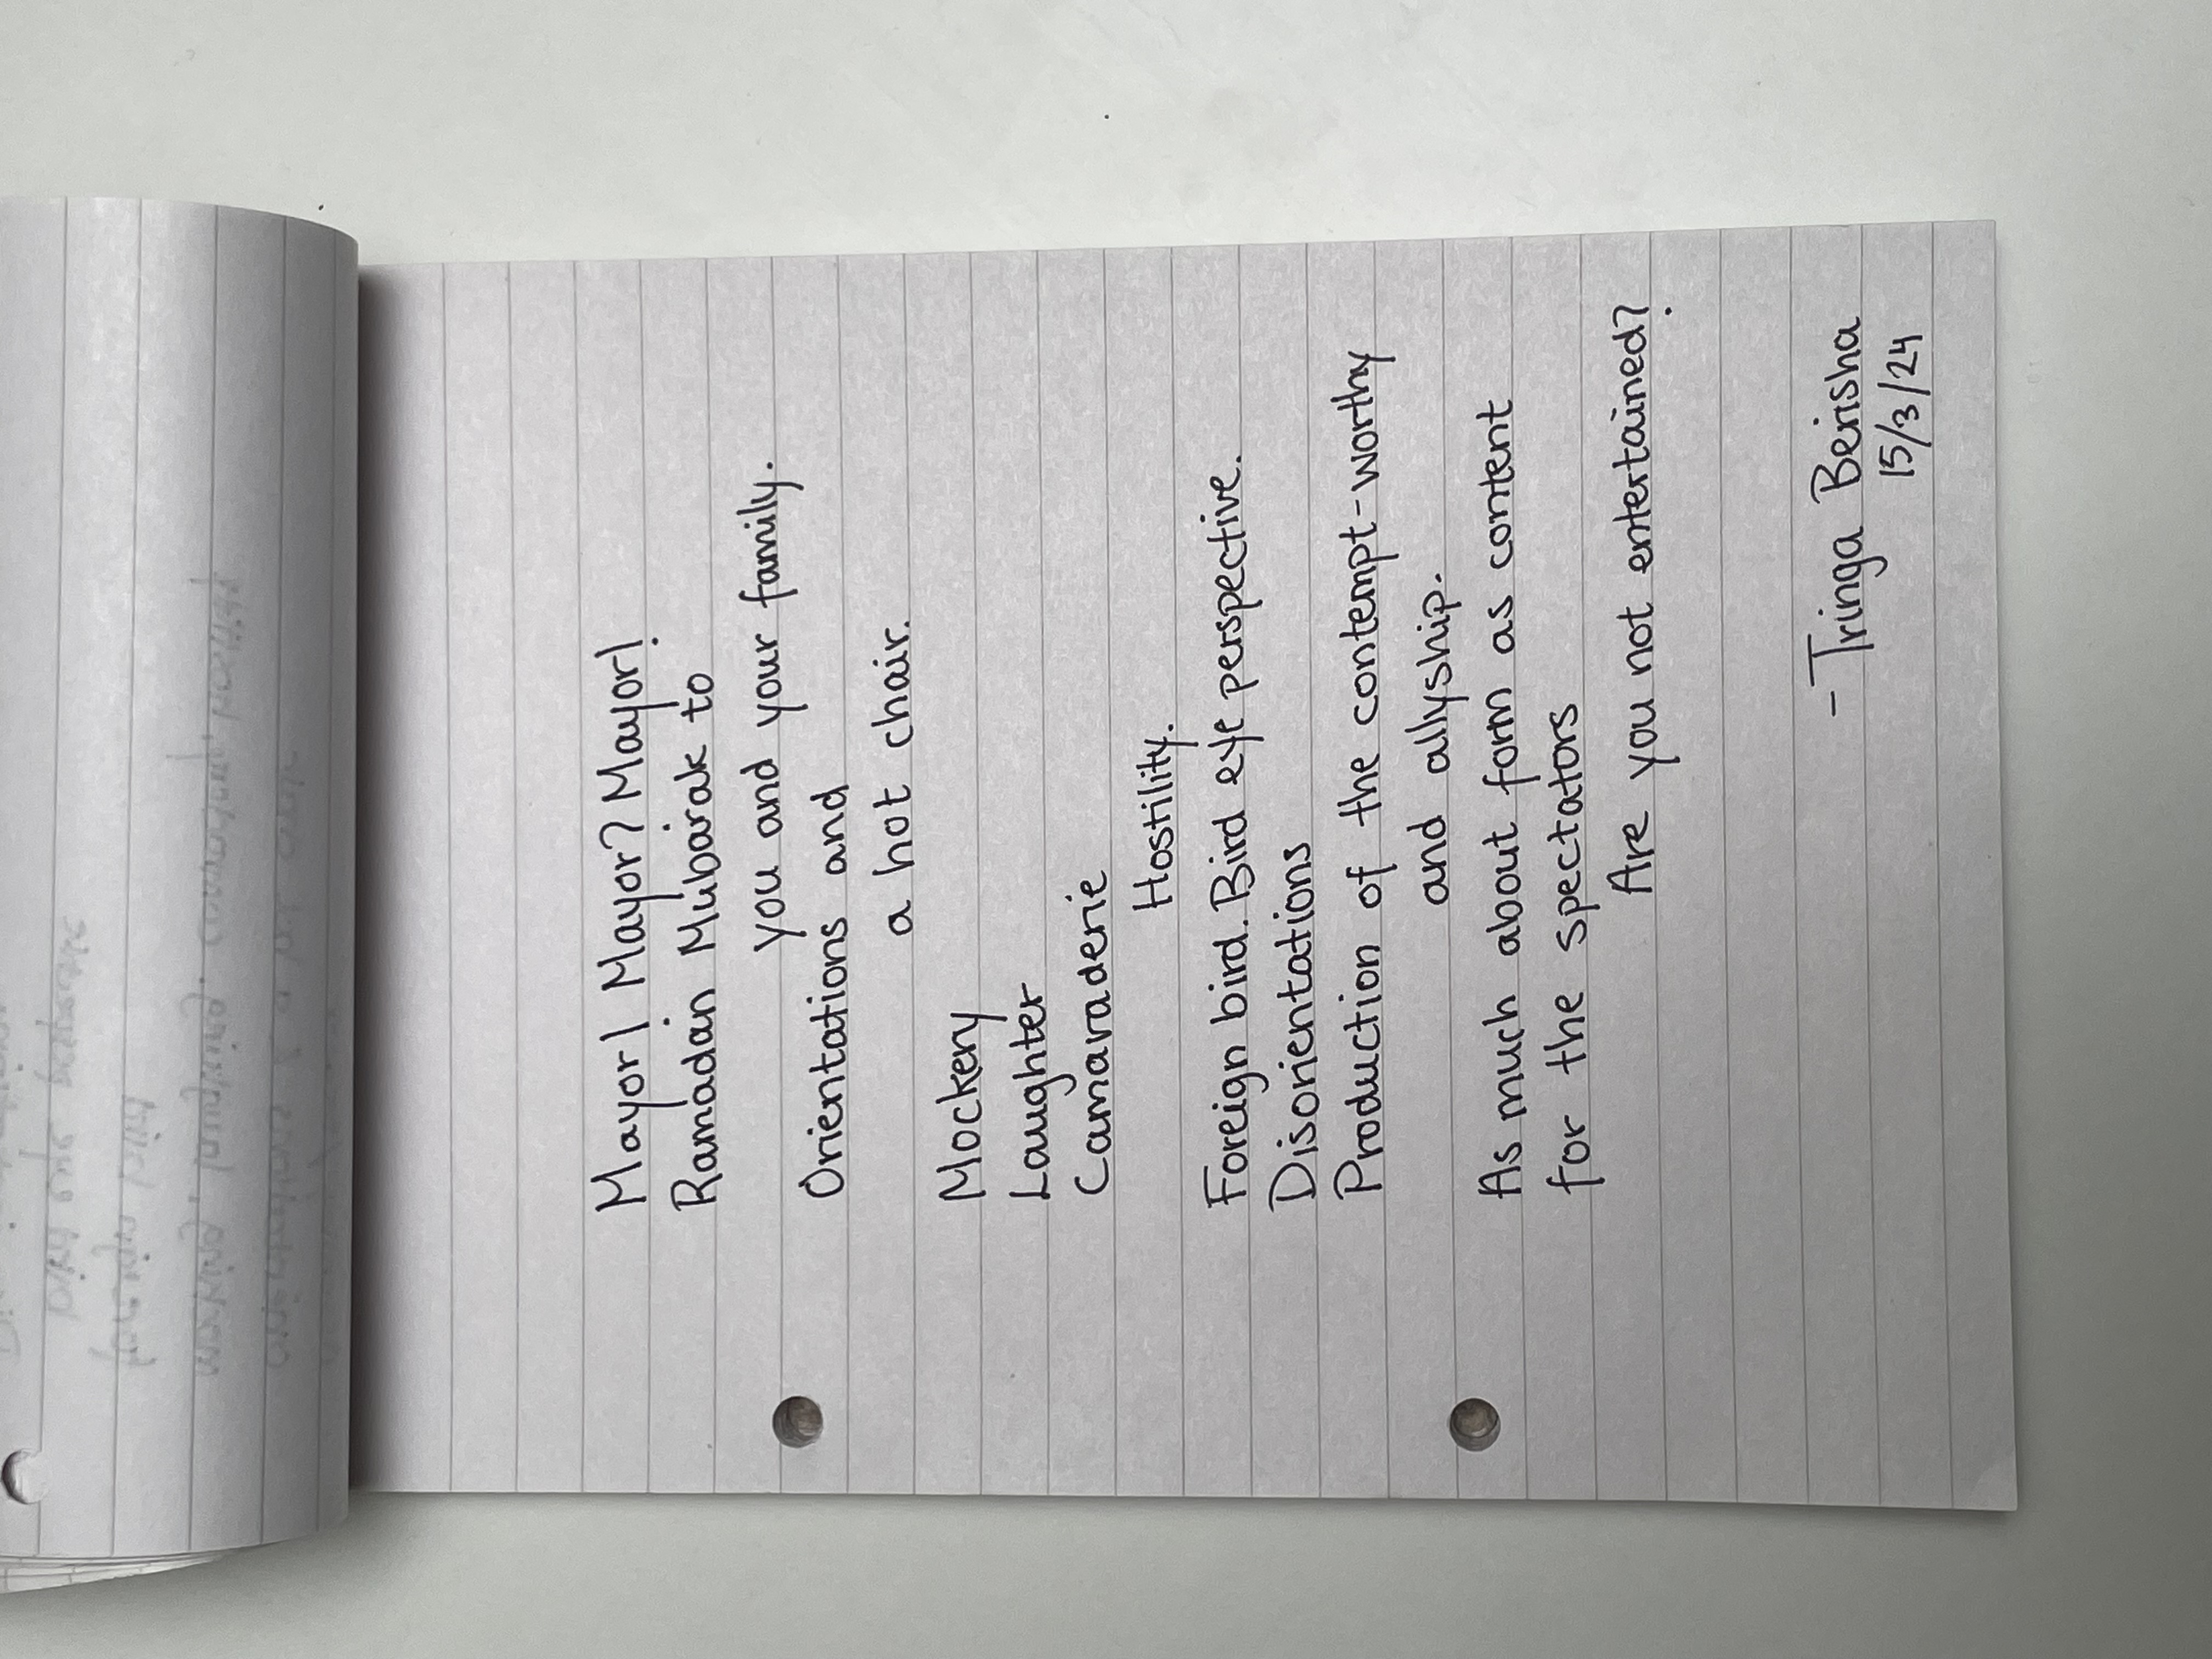 Mayor! Mayor? Mayor!
Ramadan Mubarak to
you and your family.
Orientations and
a hot chair.
Mockery
Laughter
Camaraderie
Hostility.
Foreign bird. Bird eye perspective.
Disorientations
Production of the contempt-worthy
and allyship.
As much about form as content
for the spectators
Are you not entertained?
- Tringa Berisha
15/3/24